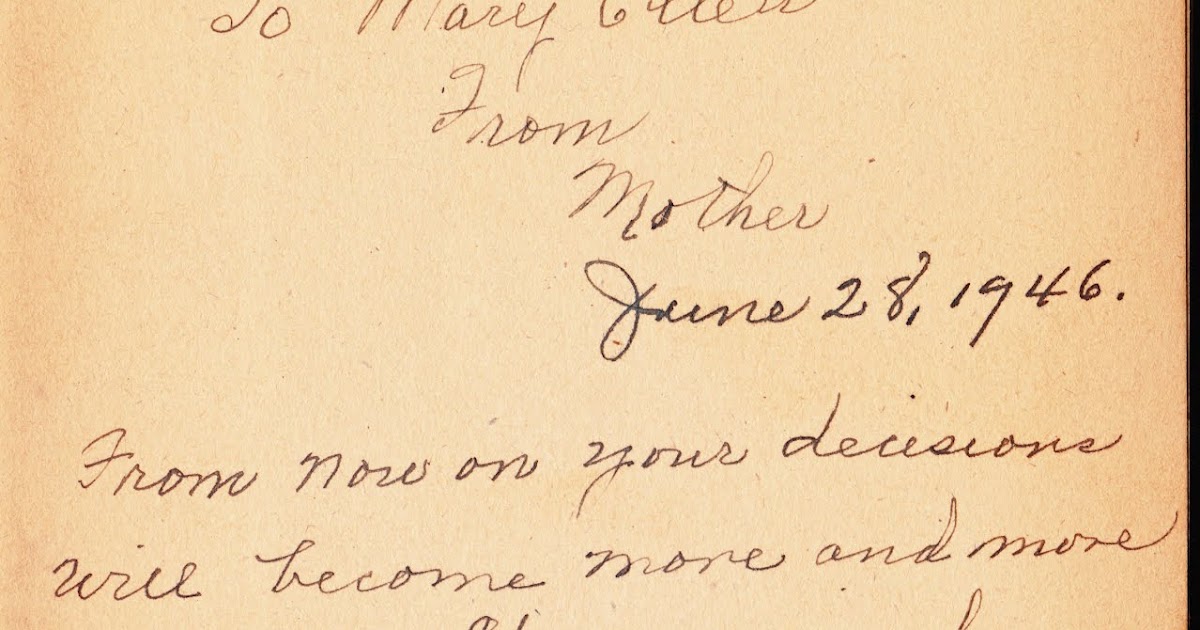 To Mary Ellen
From
Mother
June 28, 1946.
From now on your decisions
will become more and more